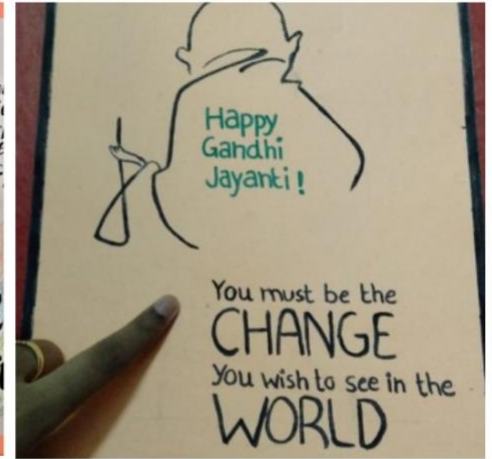 Happy
Gandhi
Jayanti!
You must be the
CHANGE
You wish to see in the
WORLD